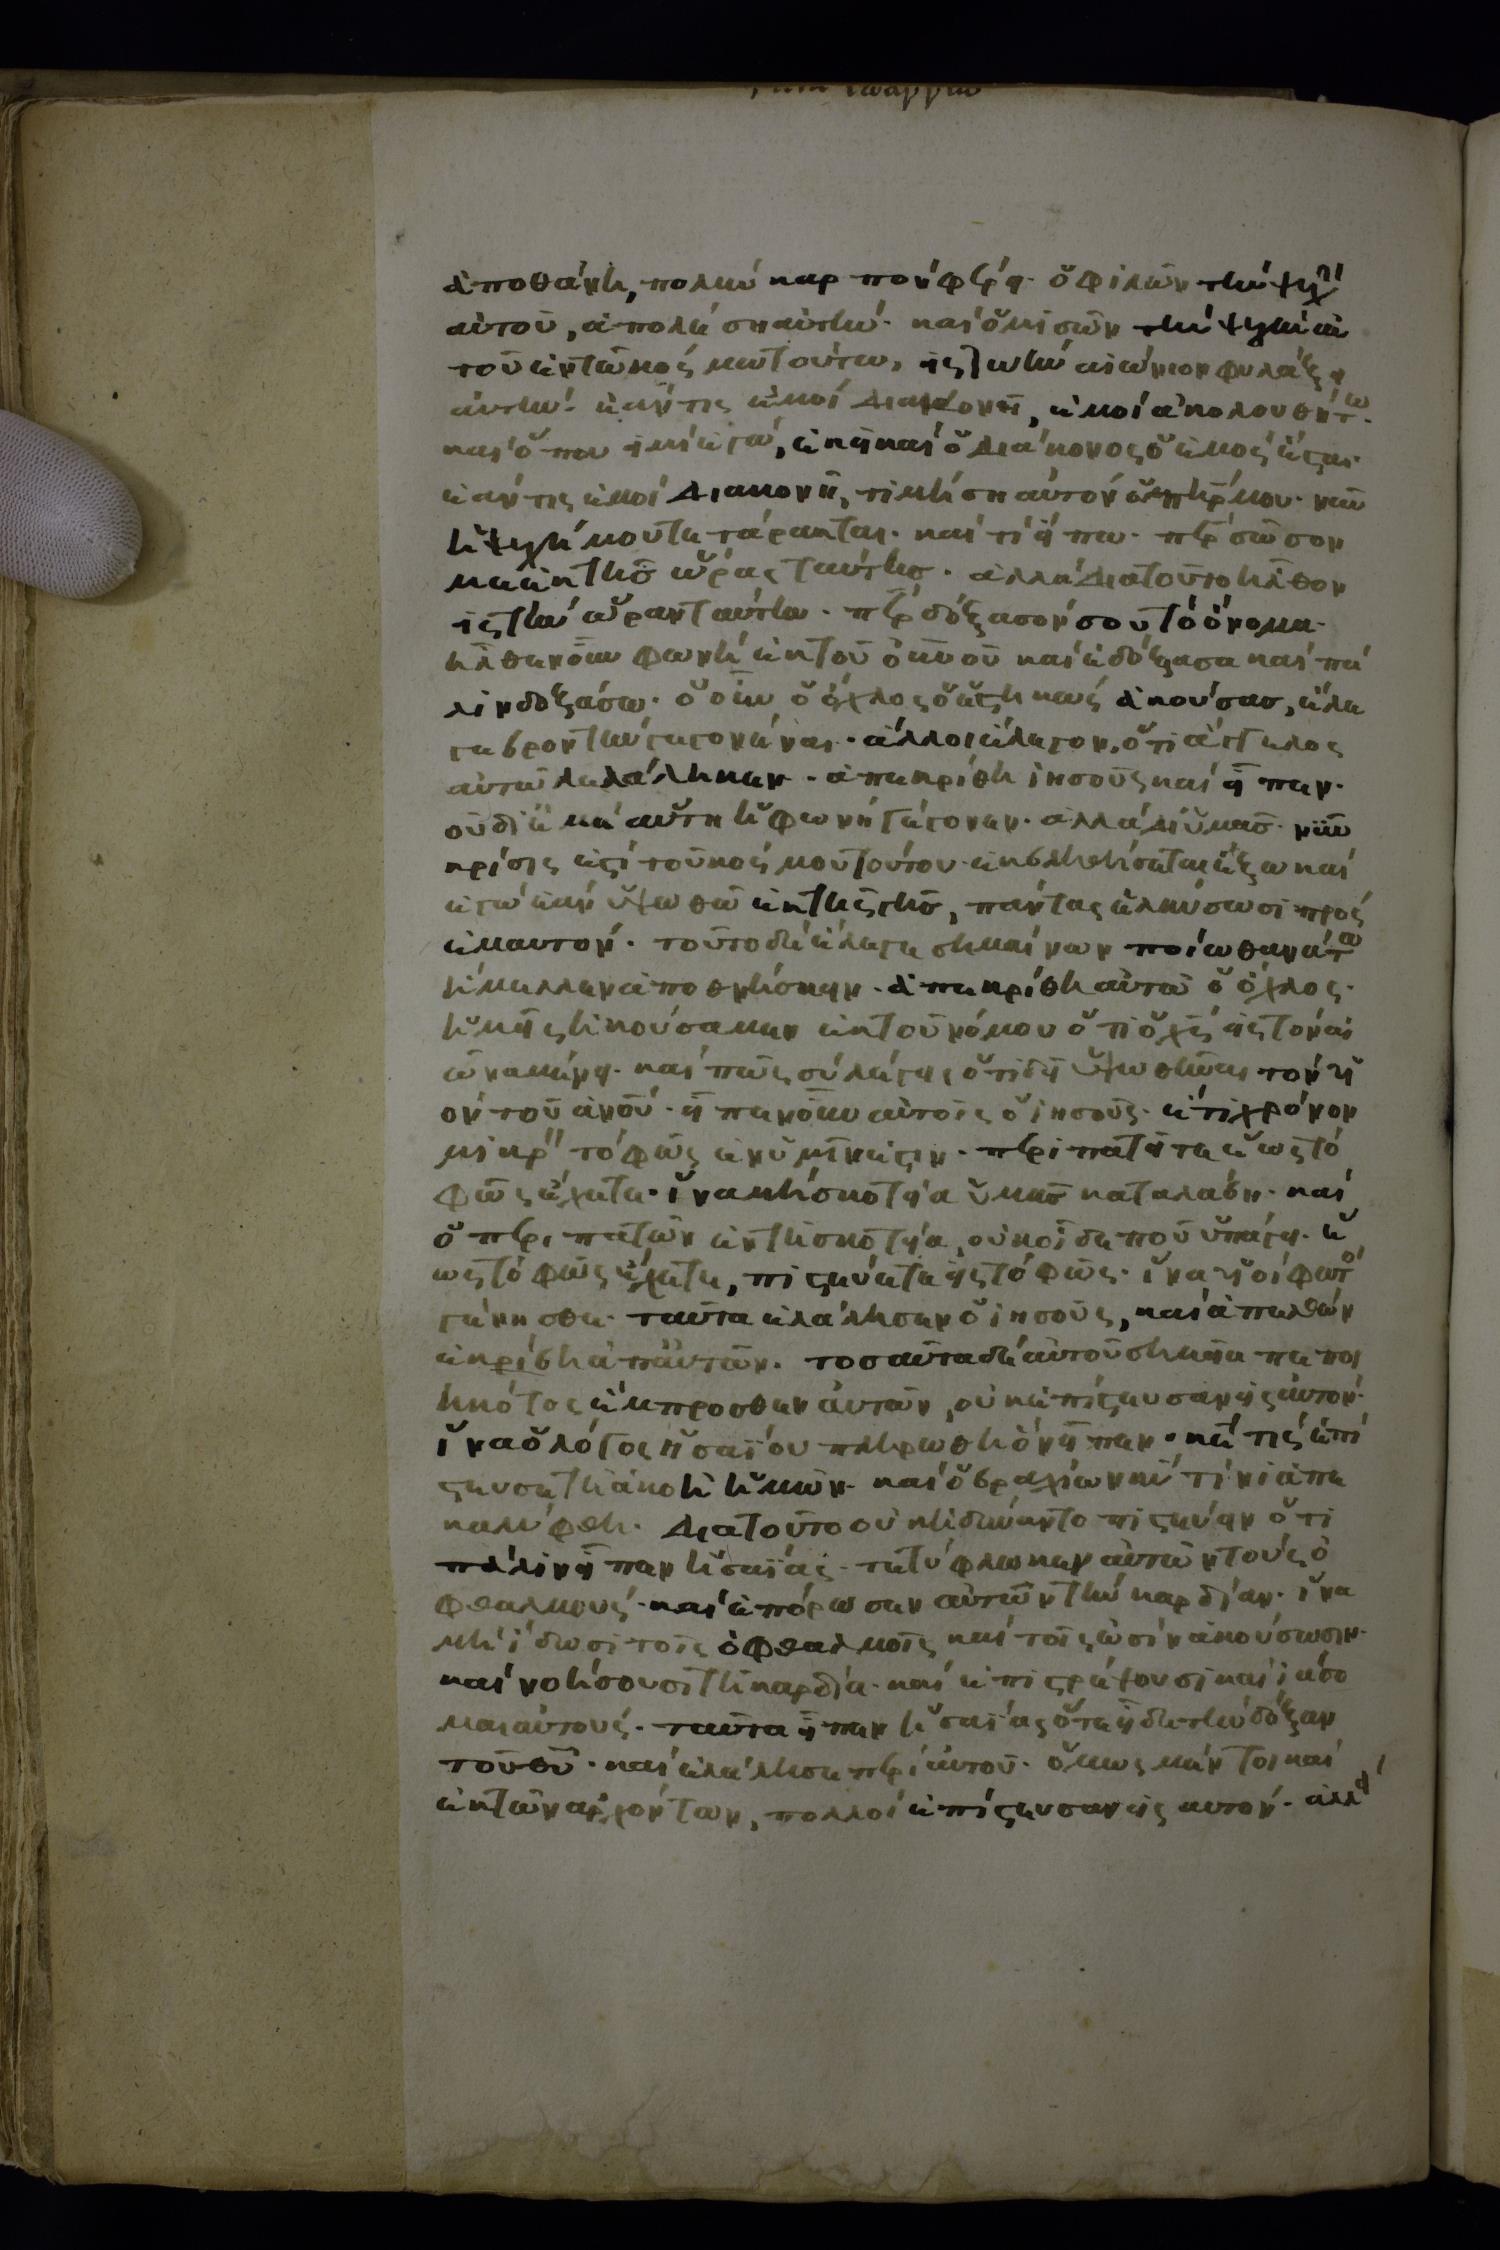 ἀποθάνη, πολὺν καρπὸν φέρει· ὁ φιλῶν τὴν ψυχὴν
αὐτοῦ, ἀπολέσει αὐτήν· καὶ ὁ μισῶν τὴν ψυχὴν αὐ
τοῦ ἐν τῶ κόσμω τούτω, εἰς ζωὴν αἰώνιον φυλάξει
αὐτήν· ἐάν τις ἐμοὶ διακονῆ, ἐμοὶ ἀκολουθείτω·
καὶ ὅπου εἰμὶ ἐγώ, ἐκεῖ καὶ ὁ διάκονος ὁ ἐμὸς ἔσται·
ἐάν τις ἐμοὶ διακονῆ, τιμήσει αὐτὸν ὁ πηρ μου· νῦν
ἡ ψυχή μου τετάρακται· καὶ τί εἴπω· περ σῶσόν
με ἐκ τῆς ὥρας ταύτης· ἀλλὰ διὰ τοῦτο ἦλθον
εἰς τὴν ὥραν ταύτην· περ δόξασόν σου τὸ ὄνομα·
ἦλθεν οὖν φωνὴ ἐκ τοῦ οὐνοῦ καὶ ἐδόξασα καὶ πά
λιν δοξάσω· ὁ οὖν ὁ ὄχλος ὁ ἑστηκὼς ἀκούσας, ἔλε
γε βροντὴν γεγονέναι· ἄλλοι ἔλεγον, ὅτι ἄγγελος
αὐτῶ λελάληκεν· ἀπεκρίθη ἰησοῦς καὶ εἶπεν·
οὐ δι ἐμὲ αὕτη ἡ φωνὴ γέγονεν· ἀλλὰ δι ὑμᾶς· νῦν
κρίσις ἐστὶ τοῦ κόσμου τούτου· ἐκβληθήσεται ἔξω καὶ
ἐγὼ ἐὰν ὑψωθῶ ἐκ τῆς γῆς, πάντας ἑλκύσωσι πρὸς
ἐμαυτόν· τοῦτο δὲ ἔλεγε σημαίνων ποίω θανάτω
ἤμελλεν ἀποθνήσκειν· ἀπεκρίθη αὐτῶ ὁ ὄχλος·
ἡμεῖς ἠκούσαμεν ἐκ τοῦ νόμου ὅτι ὁ χς εἰς τὸν αἰ
ῶνα μένει· καὶ πῶς σὺ λέγεις ὅτι δεῖ ὑψωθῆναι τὸν υἱ
ὸν τοῦ ἀνοῦ· εἶπεν οὖν αὐτοῖς ὁ ἰησοῦς· ἔτι χρόνον
μικρὸν τὸ φῶς ἐν ὑμῖν ἐστιν· περιπατεῖτε ἕως τὸ
φῶς ἔχετε· ἵνα μὴ σκοτεία ὑμᾶς καταλάβη· καὶ
ὁ περιπατῶν ἐν τῆ σκοτεία, οὐκ οἶδε ποῦ ὑπάγει· ἕ
ως τὸ φῶς ἔχετε, πιστεύετε εἰς τὸ φῶς· ἵνα υἱοὶ φωτὸς
γένησθε· ταῦτα ἐλάλησεν ὁ ἰησοῦς, καὶ ἀπελθὼν
ἐκρίβη ἀπ αὐτῶν· τοσαῦτα δὲ αὐτοῦ σημεῖα πεποι
ηκότος ἔμπροσθεν αὐτῶν, οὐκ ἐπίστευσαν εἰς αὐτόν·
ἵνα ὁ λόγος ἡσαΐου πληρωθῆ ὃν εἶπεν· κε τίς ἐπί
στευσε τῆ ἀκοῆ ἡμῶν· καὶ ὁ βραχίων κυ τίνι ἀπε
καλύφθη· διὰ τοῦτο οὐκ ἠδύναντο πιστεύειν ὅτι
πάλιν εἶπεν ἡσαΐας· τετύφλωκεν αὐτῶν τοὺς ὀ
φθαλμούς· καὶ ἐπόρωσεν αὐτῶν τὴν καρδίαν· ἵνα
μὴ ἴδωσι τοῖς ὀφθαλμοῖς καὶ τοῖς ὠσὶν ἀκούσωσιν·
καὶ νοήσουσι τῆ καρδία· καὶ ἐπιστρέψουσι καὶ ἰάσο
μαι αὐτούς· ταῦτα εἶπεν ἡσαΐας ὅτε εἶδε τὴν δόξαν
τοῦ θυ· καὶ ἐλάλησε περὶ αὐτοῦ· ὅμως μέντοι καὶ
ἐκ τῶν ἀρχόντων, πολλοὶ ἐπίστευσαν εἰς αὐτόν· ἀλλὰ